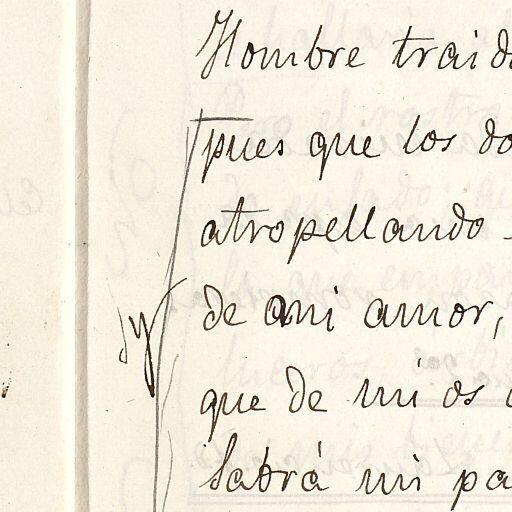 Hombre traido
pues que los do
atropellando
de mi amor,
que de mi os
Sabrá mi pa